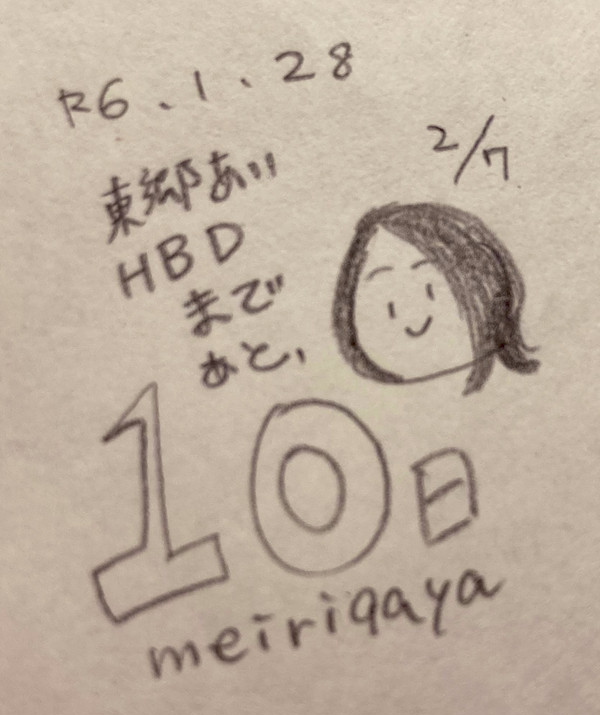 R6.1.28
2/7
東郷あい
HBD
まで
あと、
10日
meirigaya